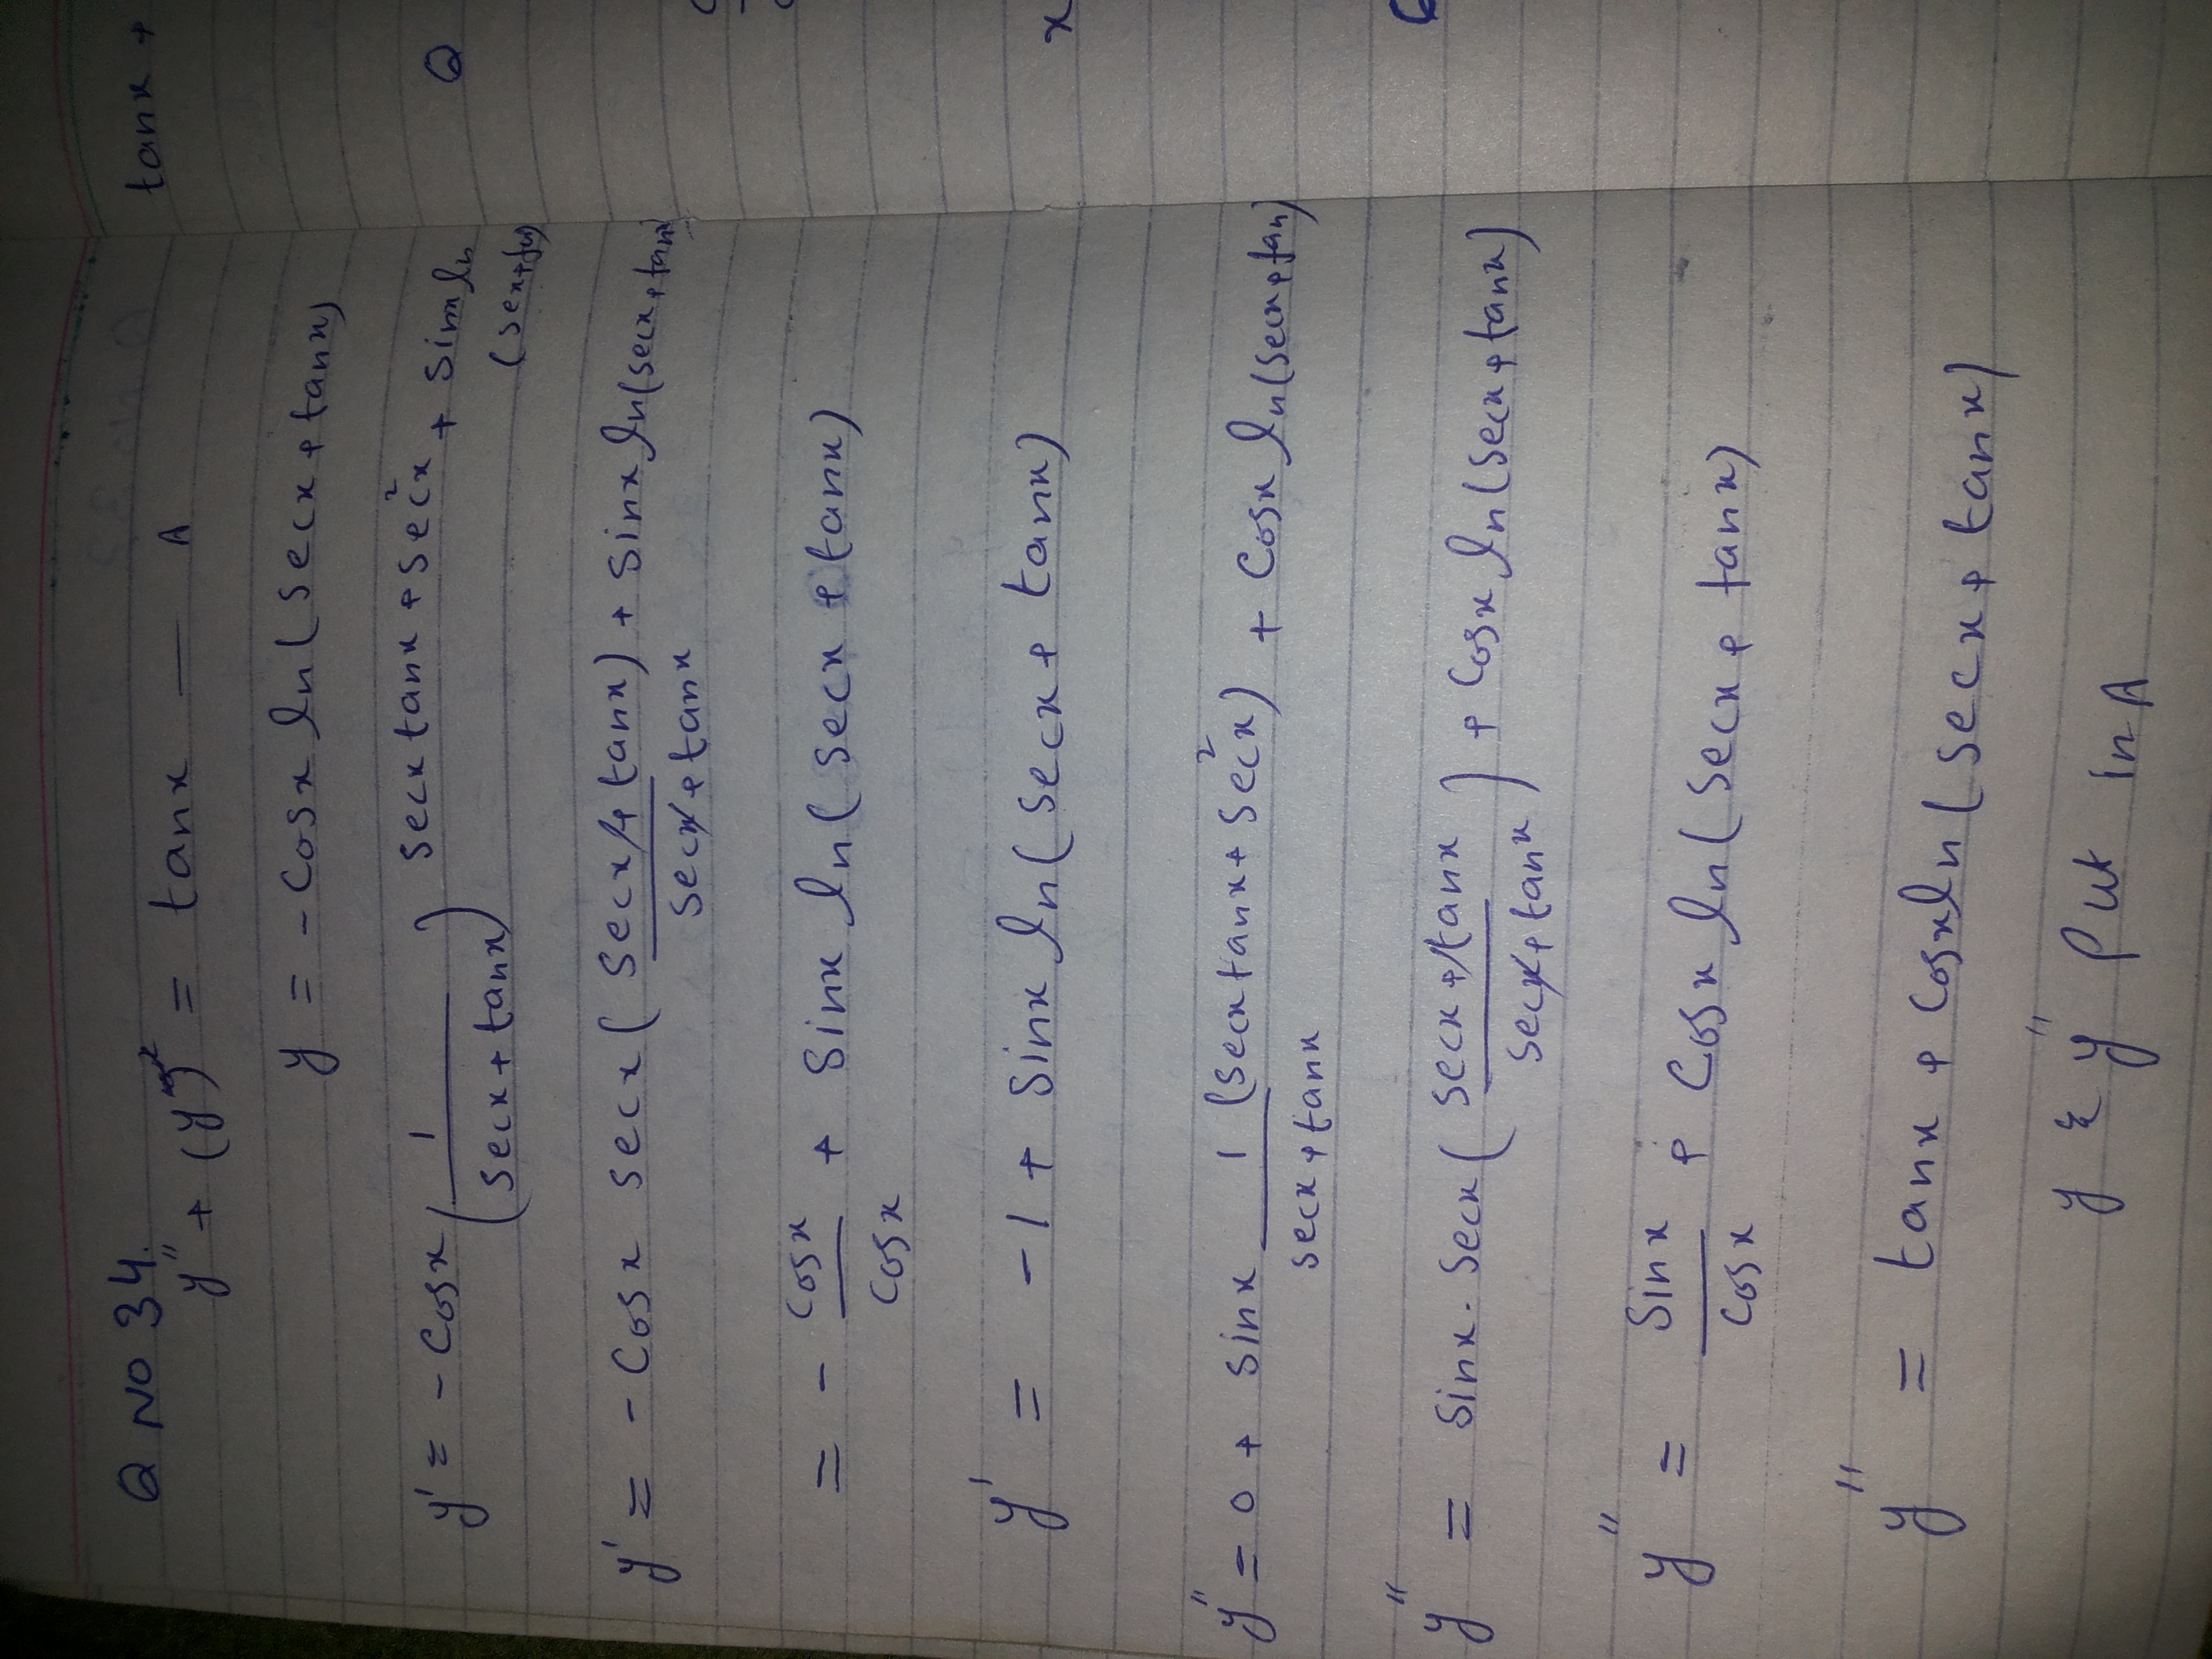 Q NO 34.
y'' + (y')² = tanx — A
y = -Cosx ln(secx+tanx)
y' = -Cosx (1/(secx+tanx)) secx tanx + sec²x + Sinx ln
(sex+tan)
y' = -Cosx secx (secx+tanx)/(secx+tanx) + Sinx ln(secx+tanx)
= - Cosx/Cosx + Sinx ln(secx+tanx)
y' = -1 + Sinx ln(secx + tanx)
y'' = 0 + sinx 1/(secx+tanx) (secxtanx+sec²x) + Cosx ln(secx+tan)
y'' = Sinx. Secx ((secx+tanx)/(secx+tanx)) + Cosx ln(secx+tanx)
y'' = Sinx/Cosx + Cosx ln(secx+tanx)
y'' = tanx + Cosxln(secx+tanx)
y & y'' Put in A
tanx +
Q
x